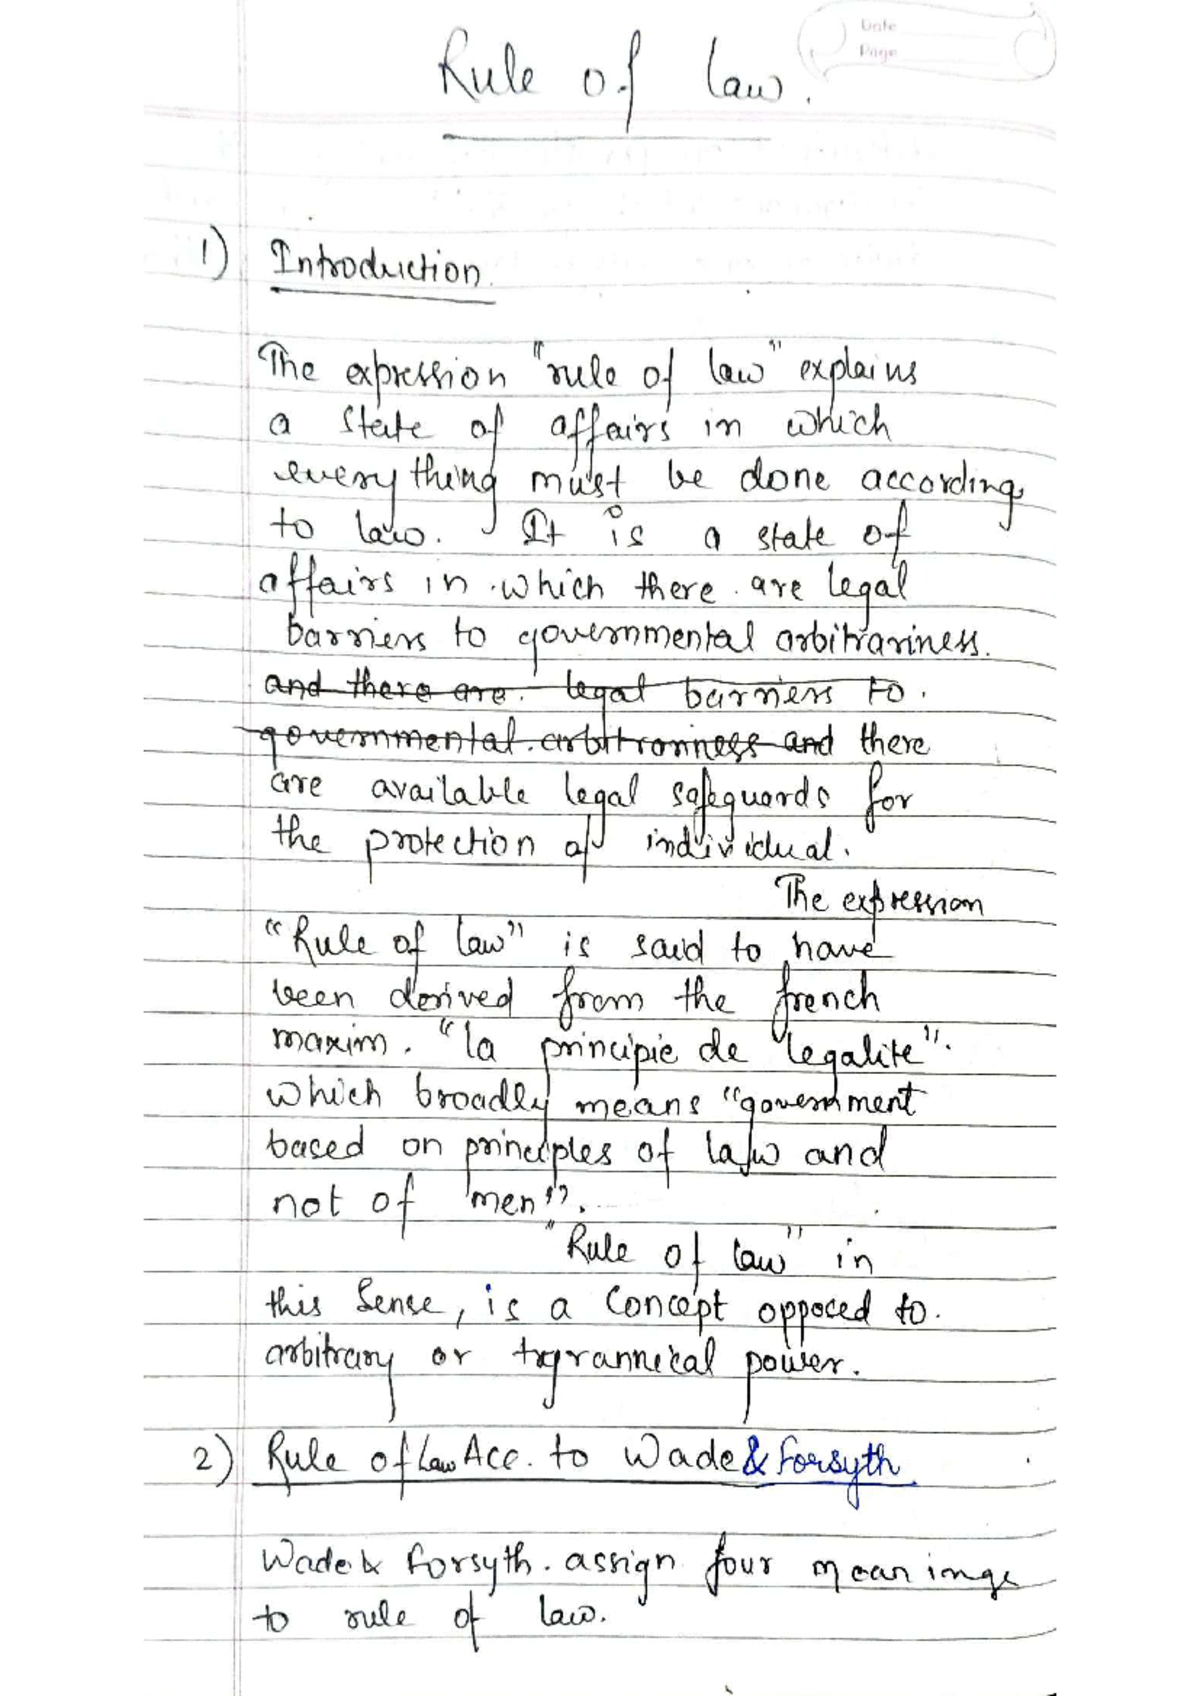 Date
Page
Rule of law.
1) Introduction.
The expression "rule of law" explains
a state of affairs in which
everything must be done according
to law. It is a state of
affairs in which there are legal
barriers to governmental arbitrariness.
and there are legal barriers to.
governmental arbitrariness and there
are available legal safeguards for
the protection of individual.
The expression
"Rule of law" is said to have
been derived from the french
maxim. "la principie de legalite".
which broadly means "government
based on principles of law and
not of men".
"Rule of law" in
this Sense, is a Concept opposed to.
arbitrary or tyrannical power.
2) Rule of Law Acc. to Wade & Forsyth
Wade & Forsyth. assign four meanings
to rule of law.